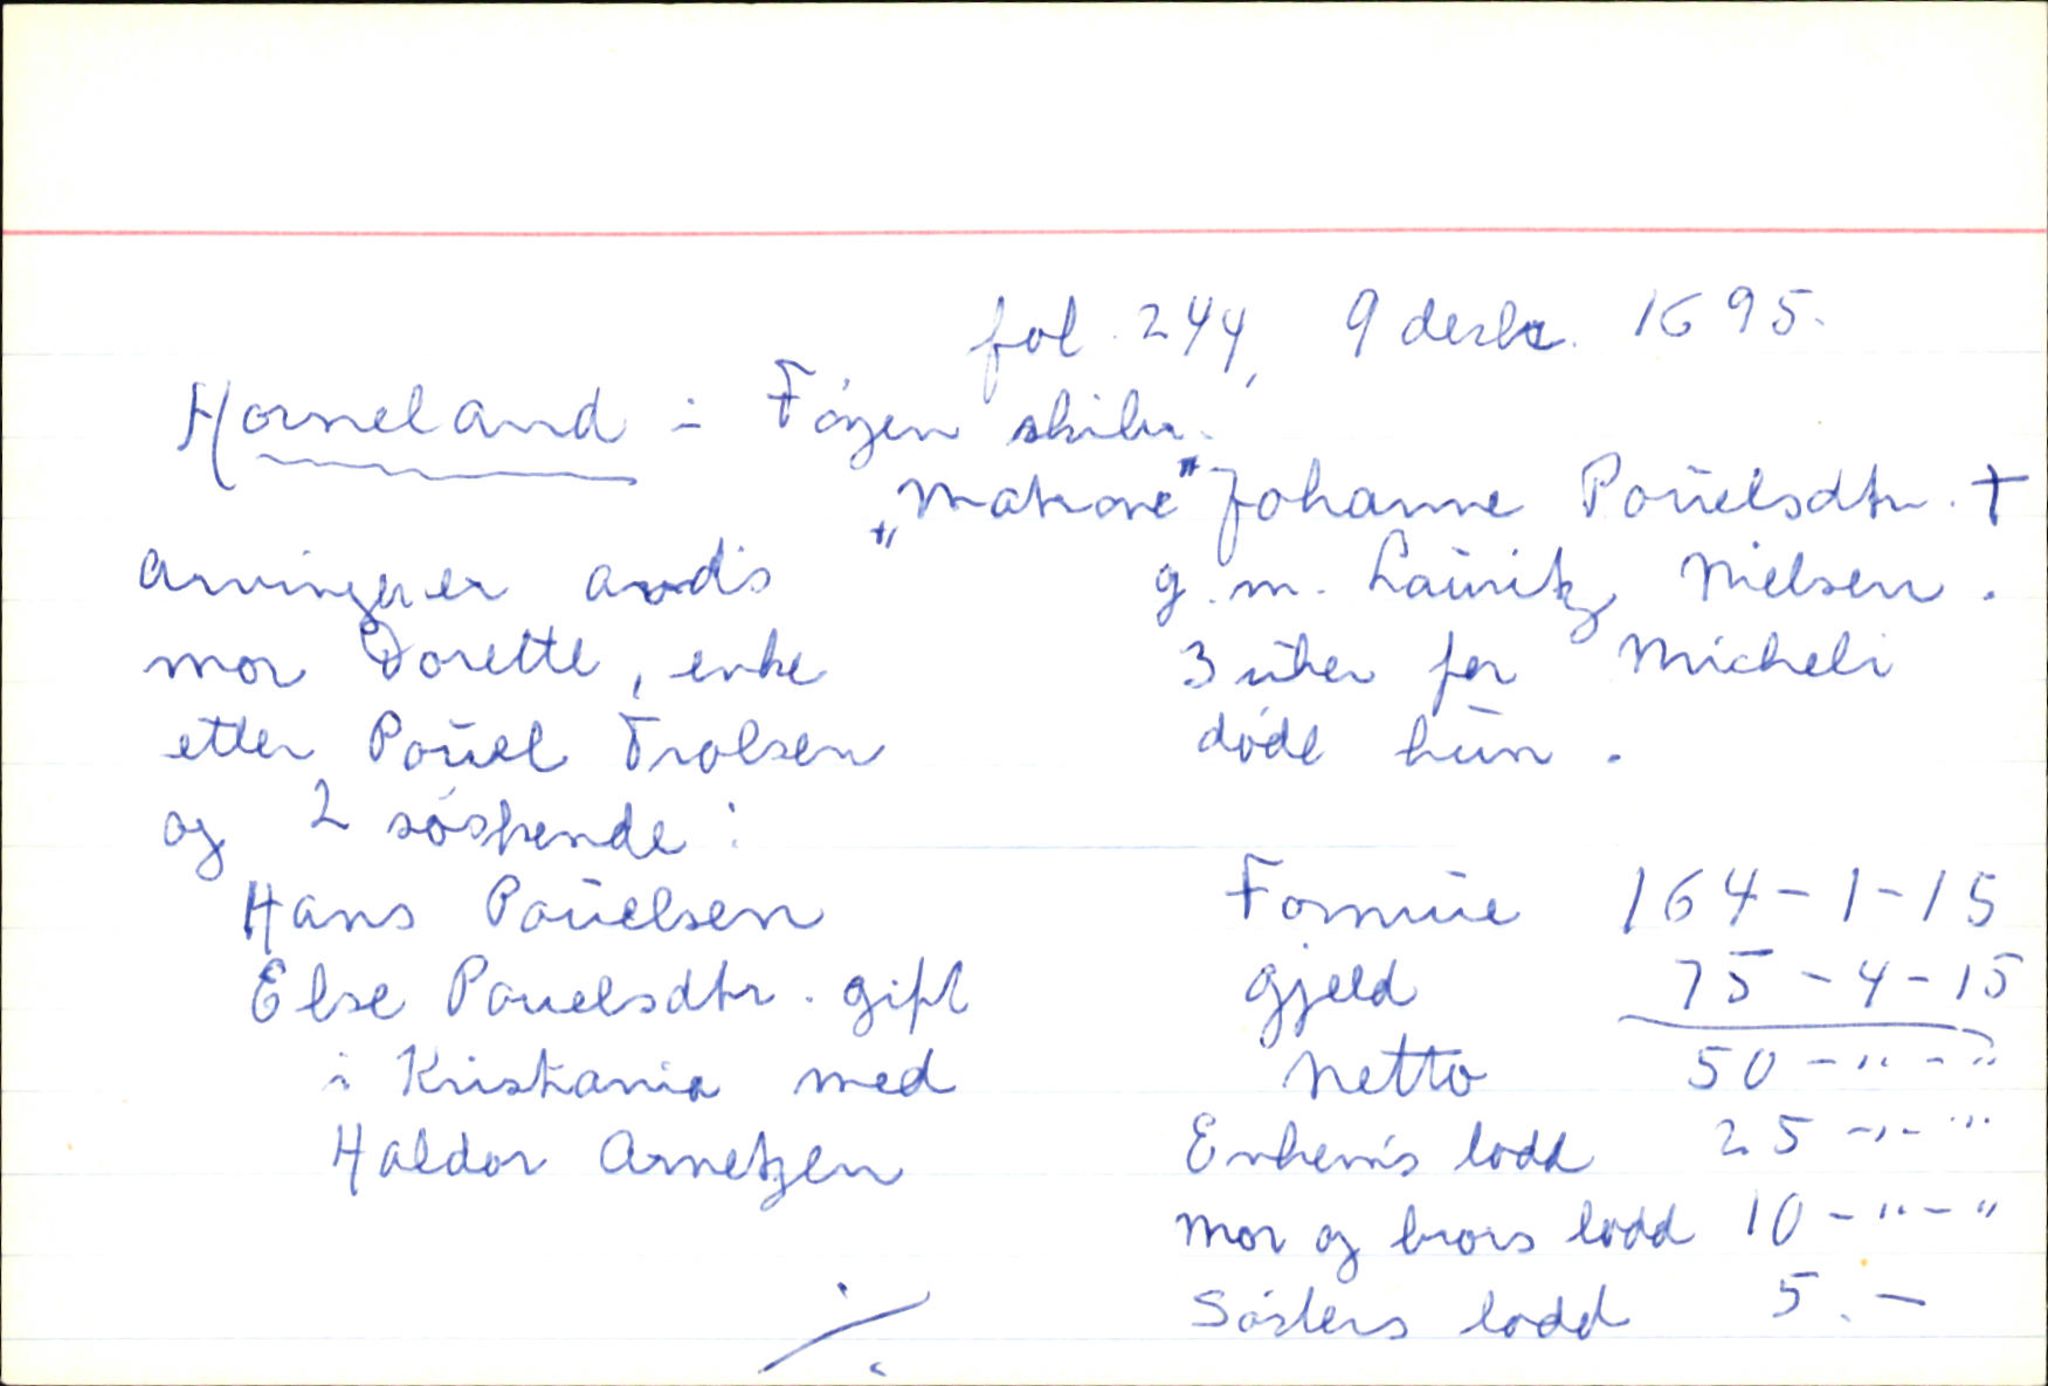 fol. 244, 9 desbr. 1695.
Horneland i Föyen skibr.
„Matrone" Johanne Poŭelsdtr. †
g. m. Laŭritz Nielsen.
3 ŭker før Micheli
døde hŭn.
Arvinger er avd's
mor Dorette, enke
etter Poŭel Trolsen
og 2 søskende:
Hans Poŭelsen
Else Pouelsdtr. gift
i Kristiania med
Haldor Arnetzen
Formŭe 164-1-15
gjeld 75-4-15
Netto 50-"-"
Enkem's lodd 25-"-"
Mor og brors lodd 10-"-"
Søsters lodd 5.-
./.